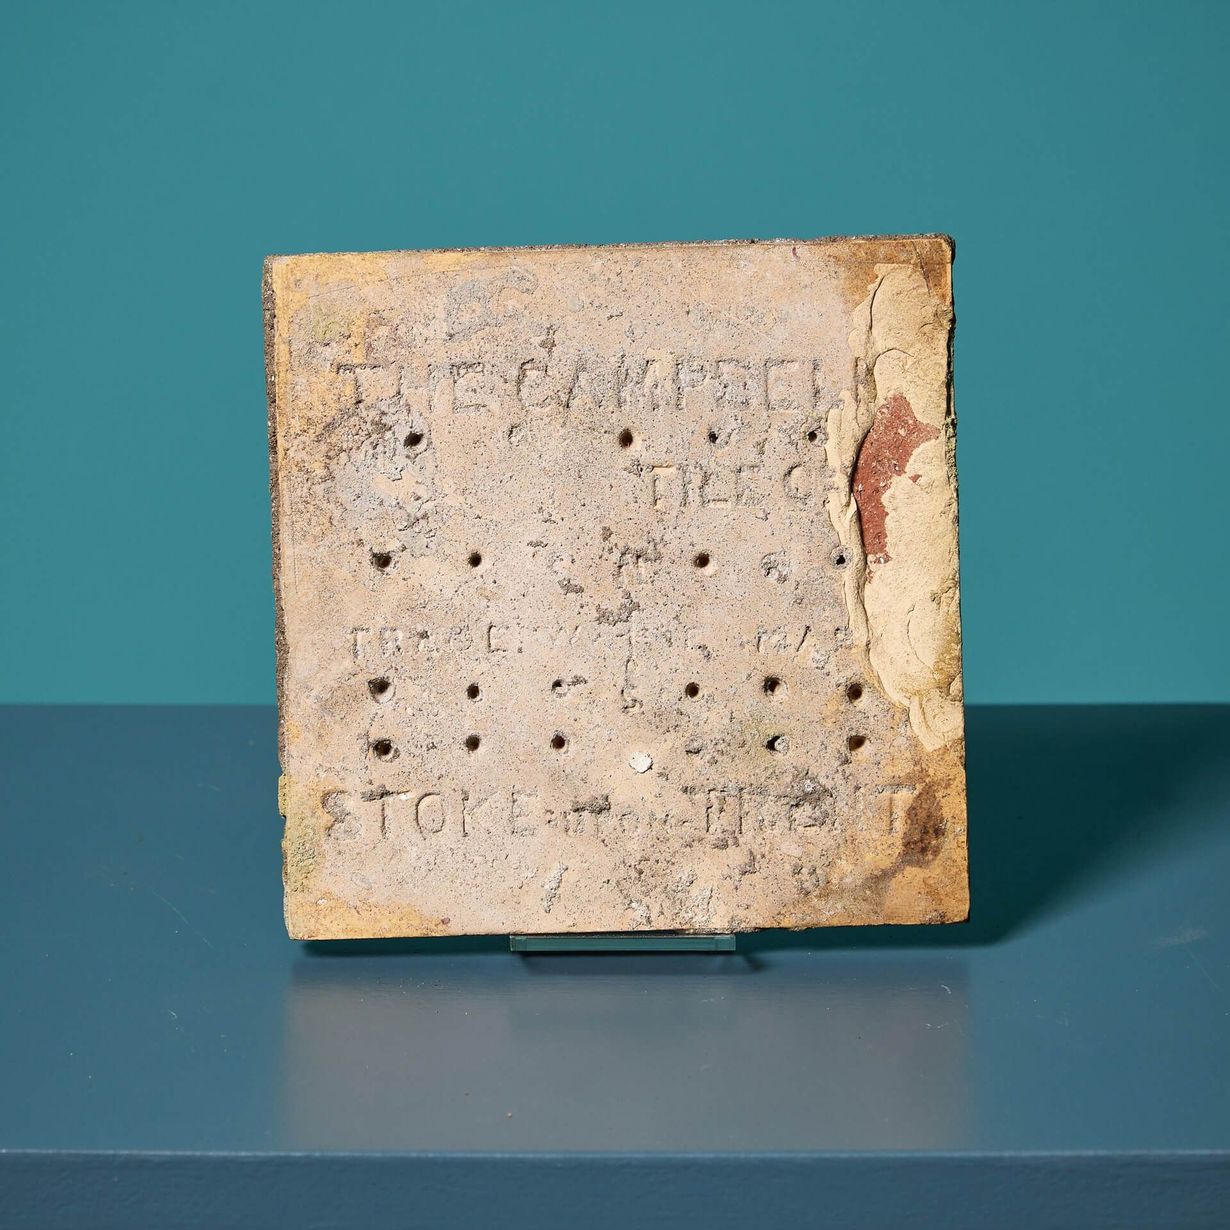 THE CAMPBEL
TILE CO
TRADE MAR
STOKE-UPON-TRENT